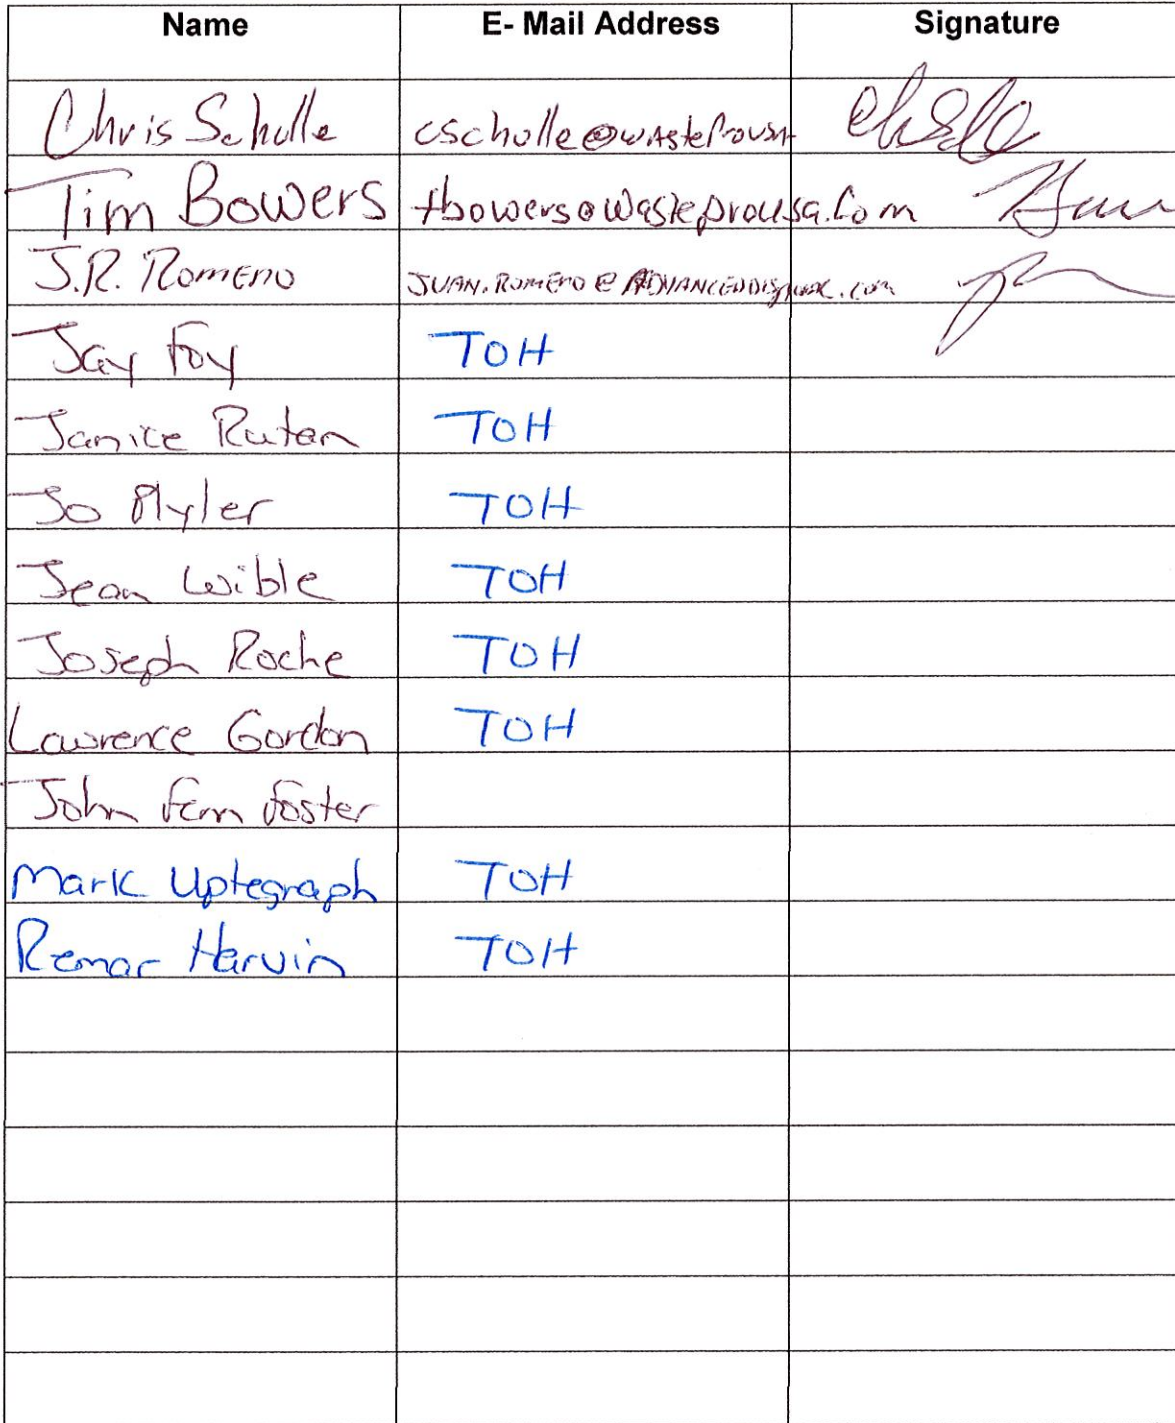 Name E- Mail Address Signature
Chris Scholle cscholle@wasteProusa
Tim Bowers tbowers@wasteprousa.com
J.R. Romero JUAN.ROMERO@ADVANCEDDISPOSAL.com
Jay Foy TOH
Janice Ruten TOH
Jo Plyler TOH
Jean Wible TOH
Joseph Roche TOH
Lawrence Gordon TOH
John Fenn Foster
Mark Uptegraph TOH
Remar Harvin TOH